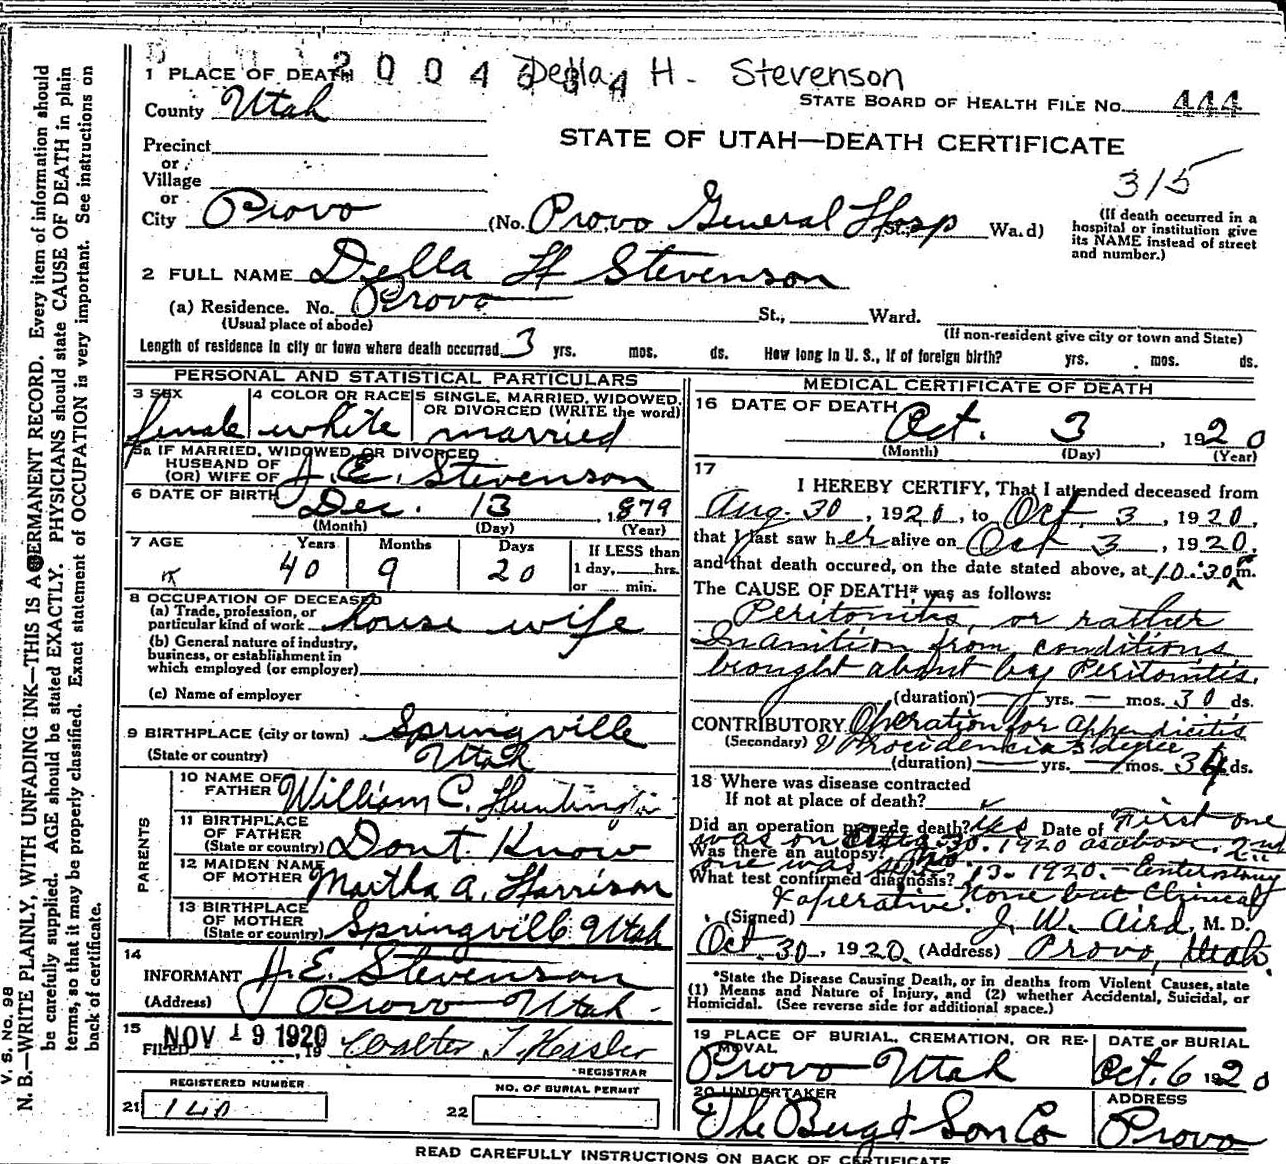 2004634 Della H. Stevenson
1 PLACE OF DEATH
STATE BOARD OF HEALTH FILE No. 444
County Utah
STATE OF UTAH—DEATH CERTIFICATE
Precinct
or
Village
or
City Provo
(No. Provo General Hosp St., Wa.d)
315
(If death occurred in a
hospital or institution give
its NAME instead of street
and number.)
2 FULL NAME Della H Stevenson
(a) Residence. No. Provo St., Ward.
(Usual place of abode)
(If non-resident give city or town and State)
Length of residence in city or town where death occurred 3 yrs. mos. ds. How long in U. S., if of foreign birth? yrs. mos. ds.
PERSONAL AND STATISTICAL PARTICULARS
3 SEX
female
4 COLOR OR RACE
white
5 SINGLE, MARRIED, WIDOWED,
OR DIVORCED (WRITE the word)
married
5a IF MARRIED, WIDOWED, OR DIVORCED
HUSBAND OF
(OR) WIFE OF J. E. Stevenson
6 DATE OF BIRTH
Dec. 13, 1879
(Month) (Day) (Year)
7 AGE
Years Months Days
40 9 20
If LESS than
1 day, hrs.
or min.
8 OCCUPATION OF DECEASED
(a) Trade, profession, or
particular kind of work house wife
(b) General nature of industry,
business, or establishment in
which employed (or employer)
(c) Name of employer
9 BIRTHPLACE (city or town) Springville
(State or country) Utah
PARENTS
10 NAME OF
FATHER William C. Huntington
11 BIRTHPLACE
OF FATHER
(State or country) Dont Know
12 MAIDEN NAME
OF MOTHER Martha A. Harrison
13 BIRTHPLACE
OF MOTHER
(State or country) Springville Utah
14
INFORMANT J. E. Stevenson
(Address) Provo Utah.
15
FILED NOV 19 1920, 19
REGISTRAR
REGISTERED NUMBER
21 140
NO. OF BURIAL PERMIT
22
MEDICAL CERTIFICATE OF DEATH
16 DATE OF DEATH
Oct. 3, 1920
(Month) (Day) (Year)
17
I HEREBY CERTIFY, That I attended deceased from
Aug. 30, 1920, to Oct. 3, 1920,
that I last saw her alive on Oct 3, 1920,
and that death occured, on the date stated above, at 10:30 m.
The CAUSE OF DEATH* was as follows:
Peritonitis, or rather
Inanition from conditions
brought about by Peritonitis.
(duration) — yrs. — mos. 30 ds.
CONTRIBUTORY Operation for Appendicitis
(Secondary) & Procidencia 3 degree
(duration) — yrs. — mos. 34 ds.
18 Where was disease contracted
If not at place of death?
Did an operation precede death? Yes Date of First one
was on Aug. 30. 1920 as above. 2nd
Was there an autopsy? No.
one was 13. 1920. - Enterostomy
What test confirmed diagnosis? None but Clinical
& operative.
(Signed) J. W. Aird, M. D.
Oct. 30, 1920. (Address) Provo, Utah.
*State the Disease Causing Death, or in deaths from Violent Causes, state
(1) Means and Nature of Injury, and (2) whether Accidental, Suicidal, or
Homicidal. (See reverse side for additional space.)
19 PLACE OF BURIAL, CREMATION, OR RE-
MOVAL
Provo Utah
DATE OF BURIAL
Oct. 6 1920
20 UNDERTAKER
The Berg & Son Co
ADDRESS
Provo
READ CAREFULLY INSTRUCTIONS ON BACK OF CERTIFICATE
V. S. No. 98
N. B.—WRITE PLAINLY, WITH UNFADING INK—THIS IS A PERMANENT RECORD. Every item of information should
be carefully supplied. AGE should be stated EXACTLY. PHYSICIANS should state CAUSE OF DEATH in plain
terms, so that it may be properly classified. Exact statement of OCCUPATION is very important. See instructions on
back of certificate.